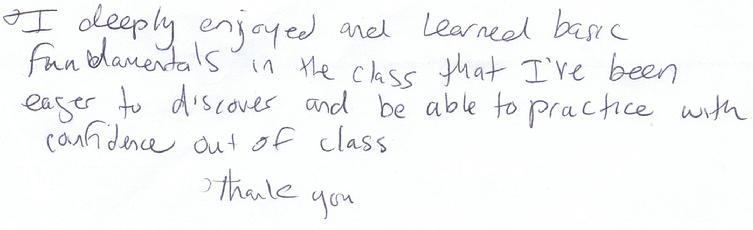 I deeply enjoyed and Learned basic
fundamentals in the class that I've been
eager to discover and be able to practice with
confidence out of class
Thank you